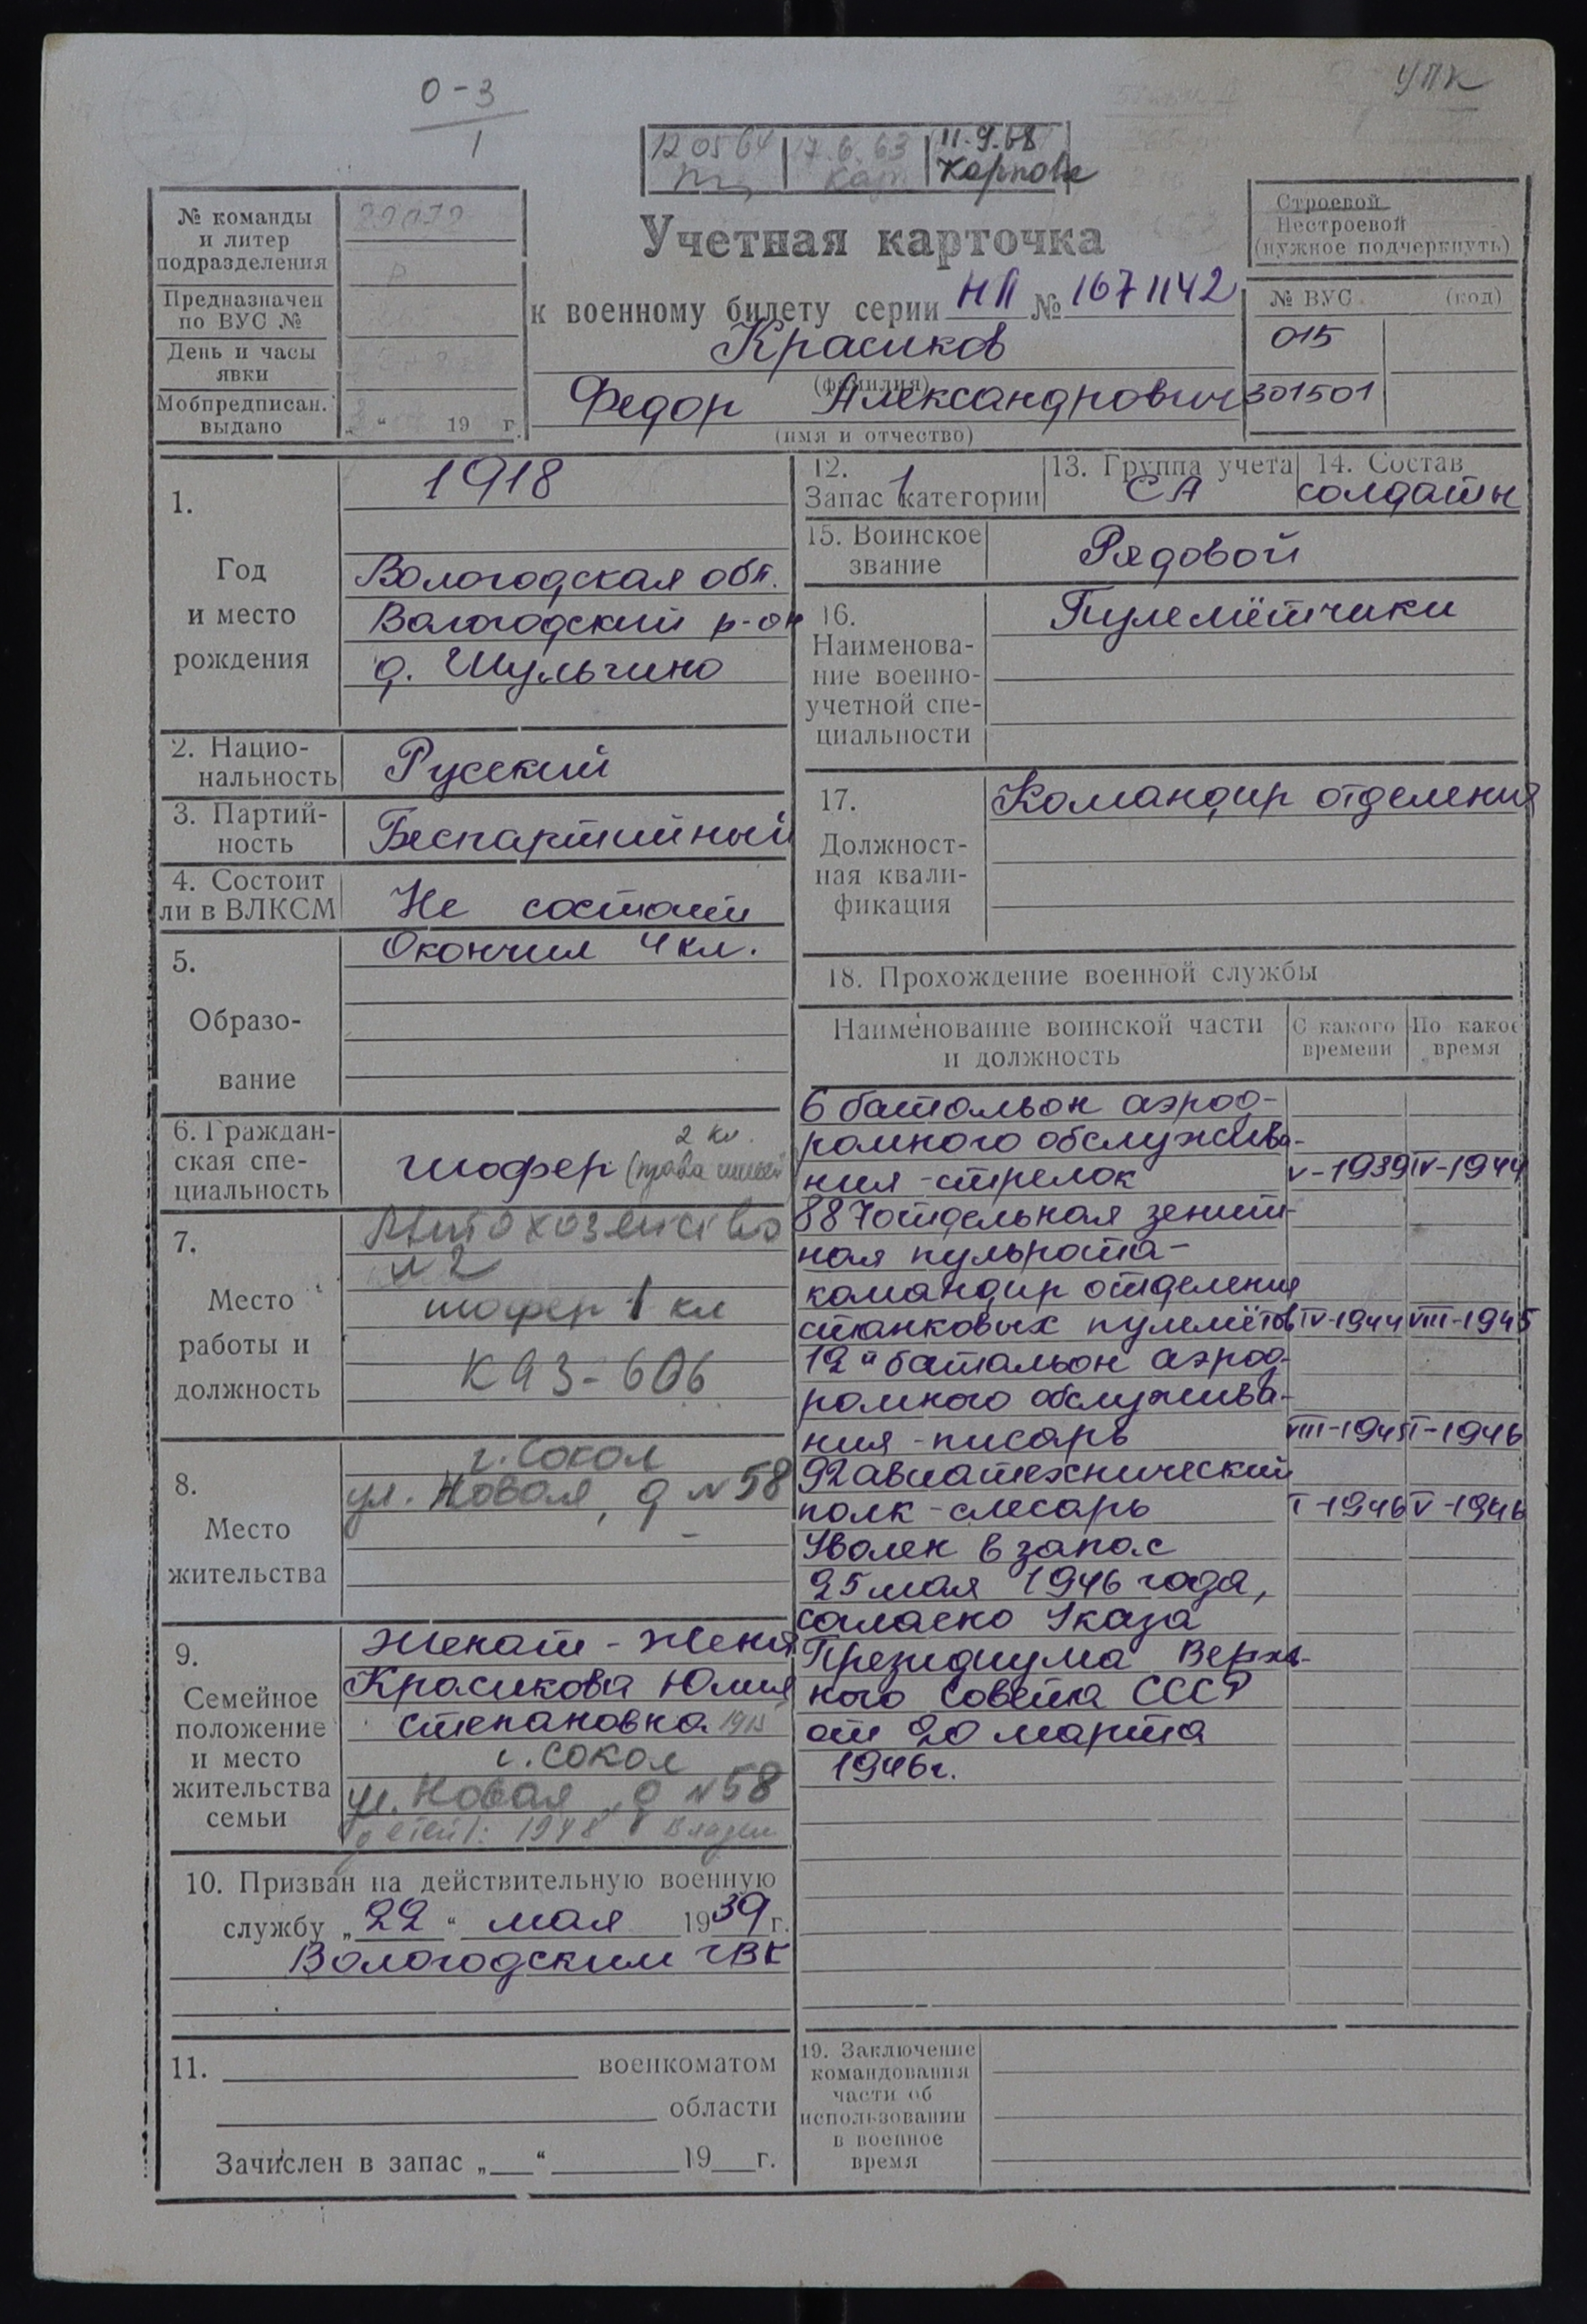 О-3
1
УПК
12 05 64 | 17.6.63 | 11.9.68
Карпова
№ команды
и литер
подразделения
Предназначен
по ВУС №
День и часы
явки
Мобпредписан.
выдано
„ “ 19 г.
Учетная карточка
к военному билету серии НП № 1671142
Красиков
(фамилия)
Федор Александрович
(имя и отчество)
Строевой
Нестроевой
(нужное подчеркнуть)
№ ВУС (код)
015
301501
1.
Год
и место
рождения
1918
Вологодская обл.
Вологодский р-он
д. Шульгино
2. Нацио-
нальность
Русский
3. Партий-
ность
Беспартийный
4. Состоит
ли в ВЛКСМ
Не состоит
5.
Образо-
вание
Окончил 4 кл.
6. Граждан-
ская спе-
циальность
2 кл.
шофер (права
7.
Место
работы и
должность
Автохозяйство
№2
шофер 1 кл
КАЗ-606
8.
Место
жительства
г. Сокол
ул. Новая, д №58
9.
Семейное
положение
и место
жительства
семьи
Женат - жена
Красикова Юлия
Степановна 1915
г. Сокол
ул. Новая, д №58
детей: 1948
10. Призван на действительную военную
службу „22“ мая 1939 г.
Вологодским ГВК
11. военкоматом
области
Зачислен в запас „ “ 19 г.
12.
Запас 1 категории
13. Группа учета
СА
14. Состав
солдаты
15. Воинское
звание
Рядовой
16.
Наименова-
ние военно-
учетной спе-
циальности
Пулемётчики
17.
Должност-
ная квали-
фикация
Командир отделения
18. Прохождение военной службы
Наименование воинской части
и должность
С какого
времени
По какое
время
6 батальон аэрод-
ромного обслужива-
ния - стрелок V-1939 IV-1944
887 отдельная зенит-
ная пульрота-
командир отделения
станковых пулемётов IV-1944 VIII-1945
12й батальон аэрод-
ромного обслужива-
ния - писарь VIII-1945 I-1946
92 авиатехнический
полк - слесарь I-1946 V-1946
Уволен в запас
25 мая 1946 года,
согласно Указа
Президиума Верхов-
ного Совета СССР
от 20 марта
1946г.
19. Заключение
командования
части об
использовании
в военное
время